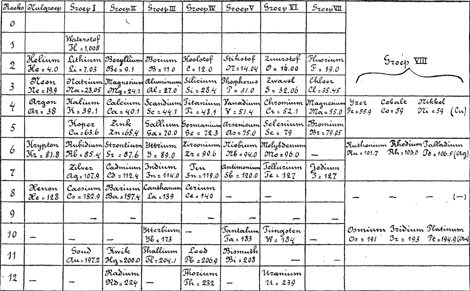 Reeks Nulgroep Groep I Groep II Groep III Groep IV Groep V Groep VI Groep VII
Groep VIII
0
1 Waterstof
H = 1,008
2 Helium Lithium Beryllium Borium Koolstof Stikstof Zuurstof Fluorium
He = 4.0 Li = 7.03 Be = 9.1 B = 11.0 C = 12.0 N = 14.04 O = 16.00 F = 19.0
3 Neon Natrium Magnesium Aluminium Silicium Phosphorus Zwavel Chloor
Ne = 19.9 Na = 23.05 Mg = 24.1 Al = 27.0 Si = 28.4 P = 31.0 S = 32.06 Cl = 35.45
4 Argon Kalium Calcium Scandium Titanium Vanadium Chromium Magnesium Yzer Cobalt Nikkel
Ar = 38 K = 39.1 Ca = 40.1 Sc = 44.1 Ti = 48.1 V = 51.4 Cr = 52.1 Mn = 55.0 Fe = 55.9 Co = 59 Ni = 59 (Cu)
5 Koper Zink Gallium Germanium Arsenicum Selenium Bromium
Cu = 63.6 Zn = 65.4 Ga = 70.0 Ge = 72.3 As = 75.0 Se = 79 Br = 79.95
6 Krypton Rubidium Strontium Yttrium Zirconium Niobium Molybdenum Ruthenium Rhodium Palladium
Kr = 81.8 Rb = 85.4 Sr = 87.6 Y = 89.0 Zr = 90.6 Nb = 94.0 Mo = 96.0 — Ru = 101.7 Rh = 103.0 Pd = 106.5 (Ag)
7 Zilver Cadmium Indium Tin Antimonium Tellurium Jodium
Ag = 107.9 Cd = 112.4 In = 114.0 Sn = 119.0 Sb = 120.0 Te = 127 J = 127
8 Xenon Caesium Barium Lanthanum Cerium
Xe = 128 Cs = 132.9 Ba = 137.4 La = 139 Ce = 140 — — — — — — (—)
9 — — — — — — —
10 Ytterbium Tantalum Tungsten Osmium Iridium Platinum
— — — Yb = 173 — Ta = 183 W = 184 — Os = 191 Ir = 193 Pt = 194.9 (Au)
11 Goud Kwik Thallium Lood Bismuth
Au = 197.2 Hg = 200.0 Tl = 204.1 Pb = 206.9 Bi = 208 — —
12 Radium Thorium Uranium
— — Rd = 224 — Th = 232 — U = 239